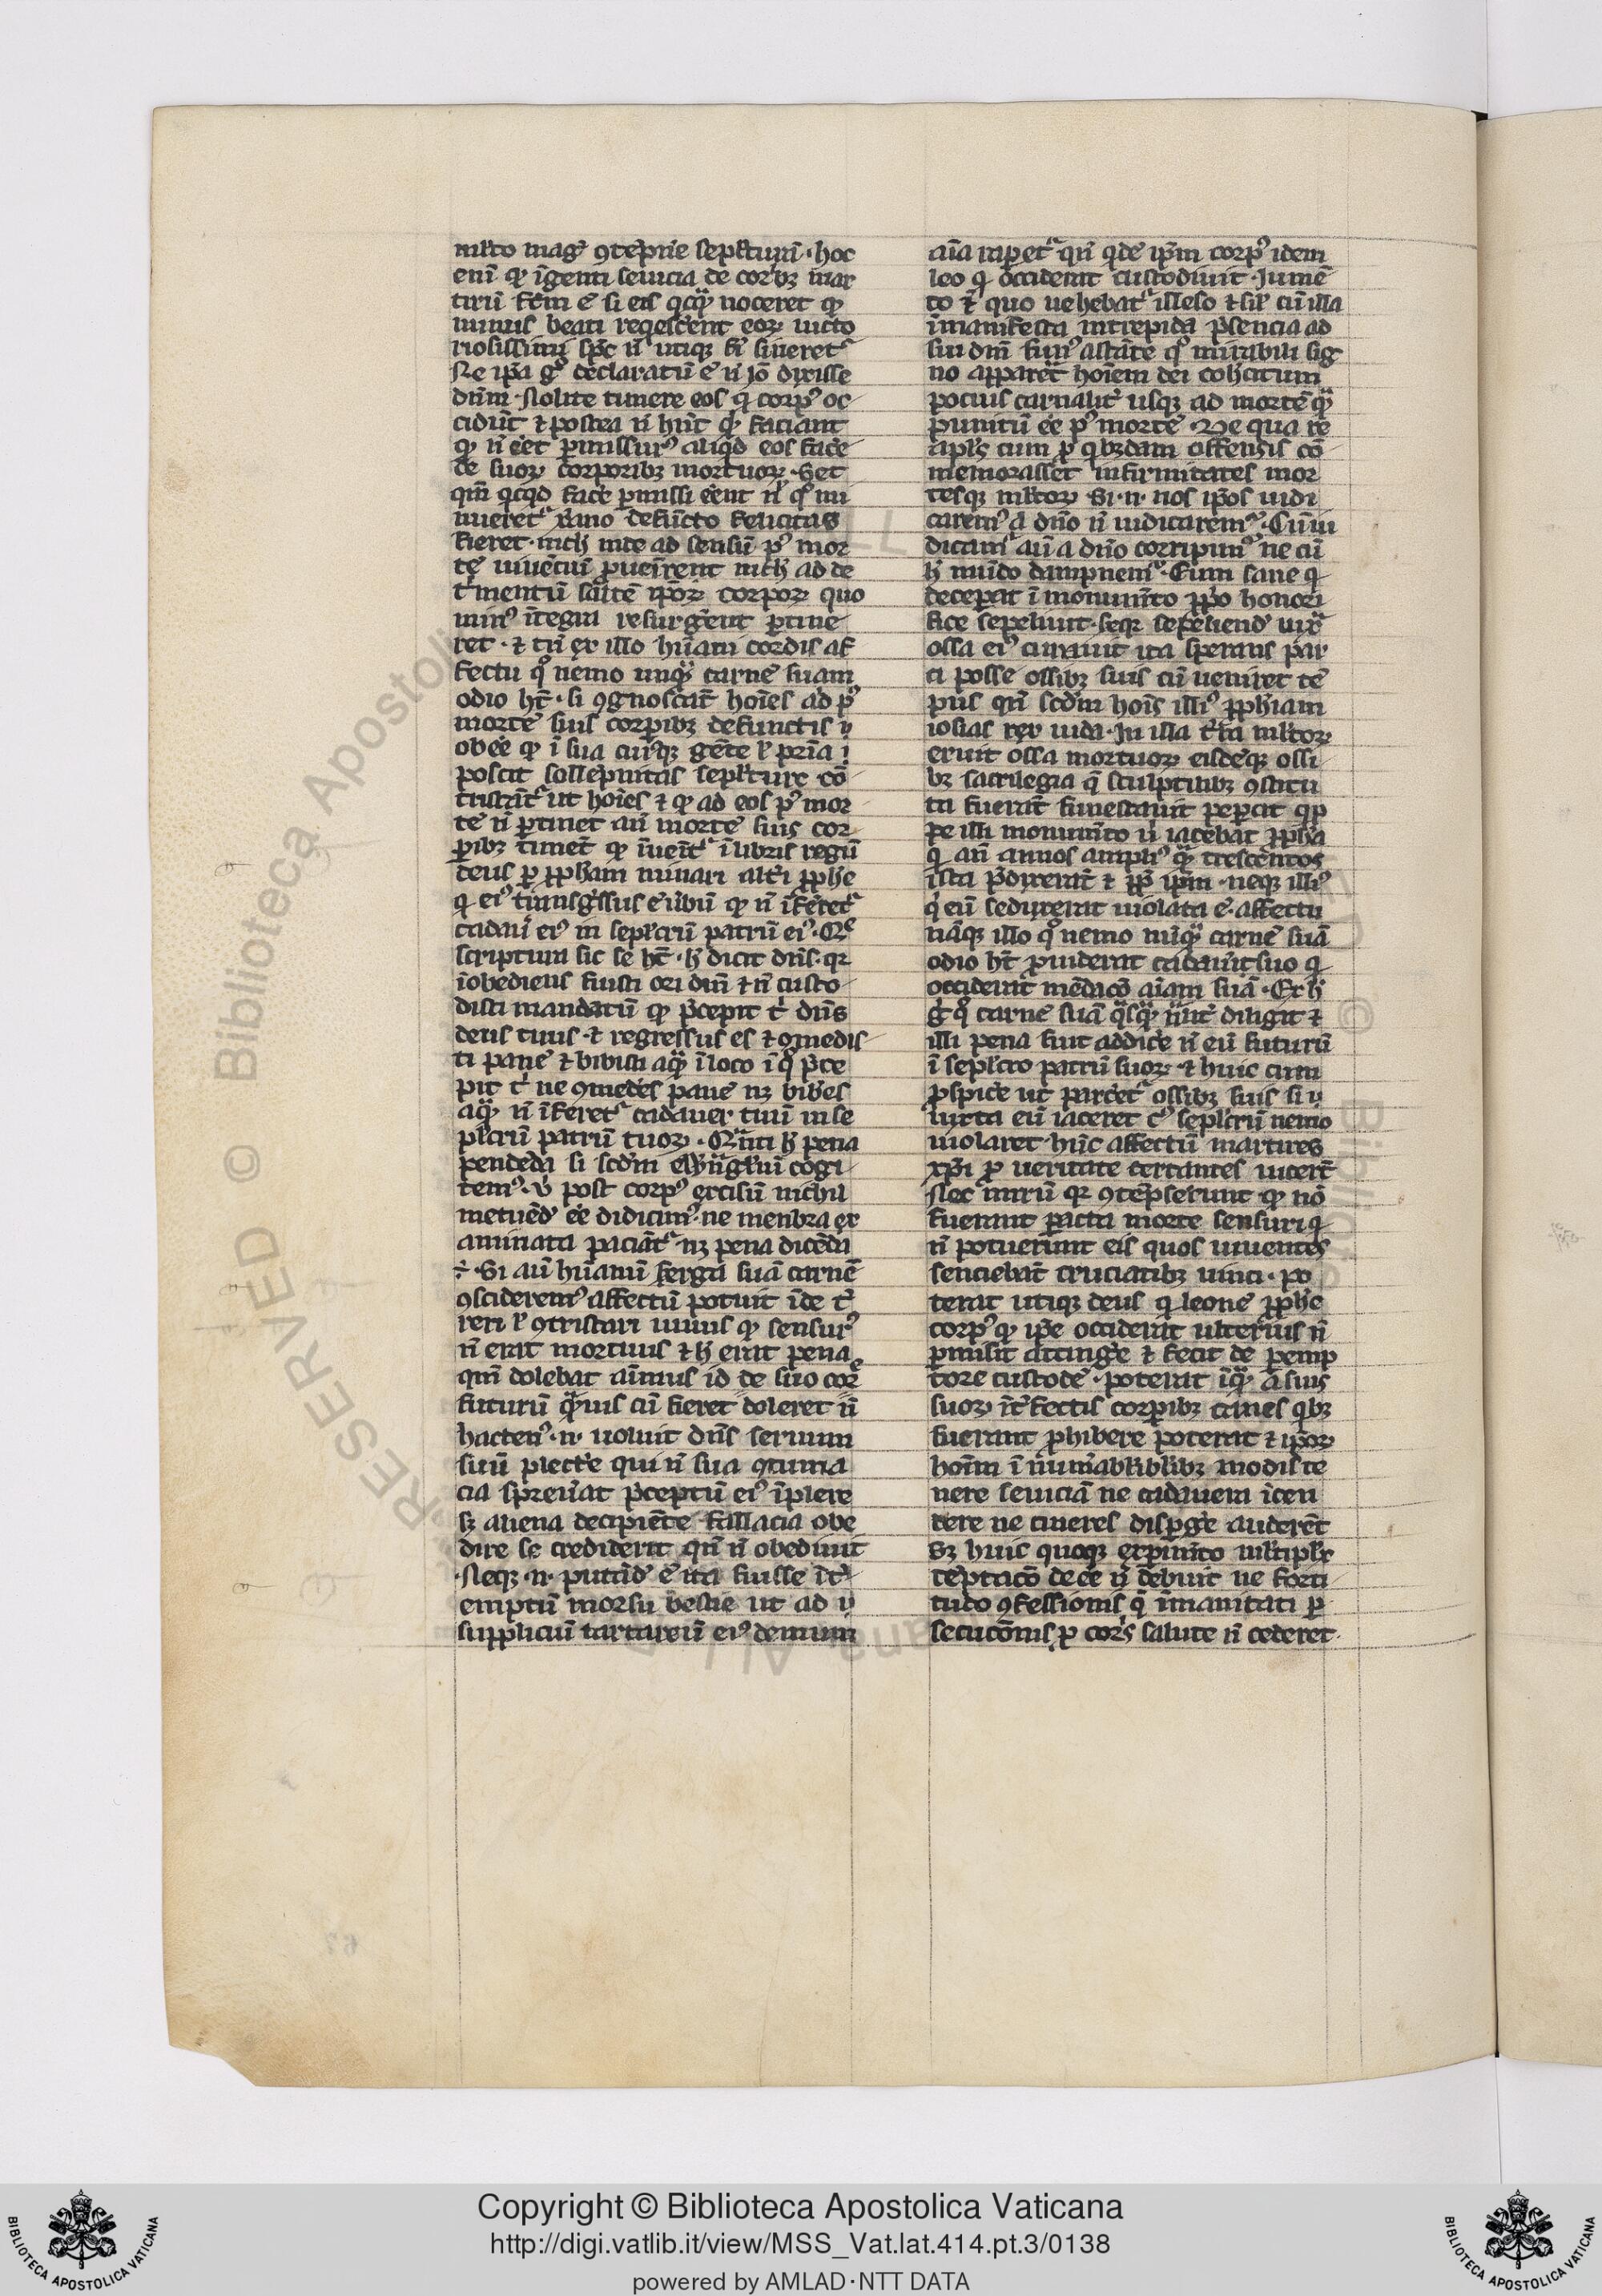 ml'to mag' ꝯtēpn̄e sepl'turā · hoc
eni ꝙ īgenti seuicia de cor'bꝫ mar
tirū fc̄m ē si eis qͥcqᷓ noceret ꝙ
minus beati reqͥesc̄ent eoꝝ uicto
riosissimi sp̄c n̄ utiqꝫ fͥ sineretᷣ
Re ip̄a gͦ declaratū ē n̄ io dixisse
dn̄m · Nolite timere eos qͥ corpꝰ oc
cidūt ⁊ postea n̄ hn̄t qͥd faciant
ꝙ n̄ eēt ꝑmissurꝰ aliqͥd eos face
de suoꝝ corporibꝫ mortuoꝝ · Set
qm̄ qͥcqͥd face ꝑmissi eēnt nͥ qͦ mi
nueretᷣ xͣano defūcto felicitas
fieret · nich' inde ad sensū pꝰ mor
tē uiuēciū ꝑueīrent nich' ad de
tͥmentū saltē ip̄oꝝ corpoꝝ quo
minꝰ ītegra resurgēnt ꝑtine
ret · ⁊ tn̄ ex illo hūani cordis af
fectu qͦ nemo unqᷓ carnē suam
odio ht̄ · si ꝯgnoscāt hoīes ad pꝰ
mortē suis corꝑibꝫ defunctis
obeē ꝙ ī sua cuiꝰqꝫ gēte l' pr̄ia
poscit sollēpnitas sepl'ture cō
tristāt ut hoīes ⁊ ꝙ ad eos pꝰ mor
tē n̄ ꝑtinet an̄ mortē suis cor
ꝑibꝫ timēt ꝙ īueītᷣ ī libris regū
deus ꝑ ꝓph'am minari alt'i ꝓph'e
qͥ eiꝰ tͣnsgͥssus ē ūbū ꝙ n̄ īferetᷣ
cadau' eiꝰ in sepl'crū patrū eiꝰ · Qͦ
scriptura sic se ht̄ · h' dicit dn̄s · qꝛ
īobediens fuisti ori dn̄i ⁊ n̄ custo
disti mandatū ꝙ p̄cepit tͥ dn̄s
deus tuus · ⁊ regressus es ⁊ ꝯmedis
ti panē ⁊ bibisti aqᷓ ī loco ī qͦ p̄ce
pit tͥ ne ꝯmedes panē nꝫ bibes
aqᷓ n̄ īferetᷣ cadauer tuū in se
pl'crū patrū tuoꝝ · Qͣnti h' pena
pendēda si scd'm euūgl'iū cogi
temꝰ · u' post corpꝰ excisū nichil
metuēd' eē didicimꝰ · ne menbra ex
animata paciātᷣ nꝫ pena dicēda
÷ · Si aū hūanū ꝫerga suā carnē
ꝯsiderēmꝰ affectū potuit īde tͥ
reri l' ꝯtristari uiuus ꝙ sensurꝰ
n̄ erat mortuus ⁊ h' erat pena
qm̄ dolebat aīmus id de suo cor
futurū qͣmuis cū fieret doleret n̄
hactenꝰ · n̄ · uoluit dn̄s seruum
suū plectͤe qui n̄ sua ꝯtuma
cia spreu'at p̄ceptū eiꝰ īplere
sꝫ aliena decipiēte fallacia obe
dire se crediderat qn̄ n̄ obediuit
Neqꝫ · n̄ · putād' ē ita fuisse ītͥ
emptū morsu bestie ut ad
supplicium tartareū eiꝰ demum
aīa rapetᷣ qn̄ qͥdē ip̄m corpꝰ idem
leo qͥ occiderat custodiuit · Iumē
to ⁊ quo uehebatᷣ illeso ⁊ sil' cū illa
īmanifesta intrepida p̄sencia ad
sui dn̄i funꝰ astāte qͦ mirabili sig
no apparet hoīem dei coh'citum
pocius carnalit' usqꝫ ad mortē qᷓ
punitū eē pꝰ mortē · De qua re
apl's cum ꝓ qͥbꝫdam offensis cō
memorasset infirmitates mor
tesqꝫ ml'toꝝ · Si · n̄ · nos ip̄os iudi
caremꝰ a dn̄o n̄ iudicaremᷣ · Cū iu
dicamᷣ aū a dn̄o corripimᷣ ne cū
h' mūdo dampnemᷣ · Eum sane qͥ
deceperat ī monum̄to ꝓpͥo honori
fice sepeliuit · seqꝫ sepeliend' iux̄
ossa eiꝰ curauit ita sperans par
ci posse ossibꝫ suis cū ueniret tē
pus qn̄ scd'm hoīs illiꝰ ꝓph'iam
iosias rex iuda · In illa t'ra ml'toꝝ
eruit ossa mortuoꝝ eisdēqꝫ ossi
bꝫ sacrilegia qͣ sculptilibꝫ ꝯstitu
ta fuerāt funestauit pepercit qͥp
pe illi monum̄to u' iacebat ꝓph'a
qͥ an̄ annos ampliꝰ qᷓ trescentos
ista p̄dixerāt ⁊ ꝓpͥ ip̄m · neqꝫ illiꝰ
qͥ eū seduxerat uiolata ē · affectu
nāqꝫ illo qͦ nemo unqᷓ carnē suā
odio ht̄ prouiderat cadau'i suo qͥ
occiderat mēdacō aīam suā · Ex h'
gͦ qͦ carnē suā qͥsqᷓ natͣ diligit ⁊
illi pena fuit addicͤe n̄ eū futurū
ī sepl'cro patrū suoꝝ · ⁊ huic cura
ꝓspicͤe ut parcetᷣ ossibꝫ suis si
iuxta eū iaceret cͦ sepl'crū nemo
uiolaret · hūc affectū martires
xp̄i ꝓ ueritate certantes uicerūt
Nec mirū qꝛ ꝯtēpserunt ꝙ nō
fuerant ꝑacta morte sensuri qͥ
n̄ potuerunt eis quos uiuentes
senciebāt cruciatibꝫ uinci · po
terat utiqꝫ deus qͥ leonē ꝓph'e
corpꝰ ꝙ ip̄e occiderat ulterius n̄
ꝑmisit attingͤe ⁊ fecit de ꝑemp
tore custodē · poterat īqᷓ a suis
suoꝝ īt'fectis corꝑibꝫ canes qͥbꝫ
fuerant ꝓhibere poterat ⁊ ip̄oꝝ
hoīm ī nūm̄abl'ibl'ibꝫ modis te
nere seuiciā ne cadauera īcen
dere ne cineres disꝑgͤe auderēt
Sꝫ huic quoqꝫ expim̄to ml'tiplex
tēptacō deeē n̄ debuit ne forti
tudo ꝯfessionis qͣ īmanitati ꝑ
secucōnis ꝓ cor's salute n̄ cederet
Copyright © Biblioteca Apostolica Vaticana
http://digi.vatlib.it/view/MSS_Vat.lat.414.pt.3/0138
powered by AMLAD·NTT DATA